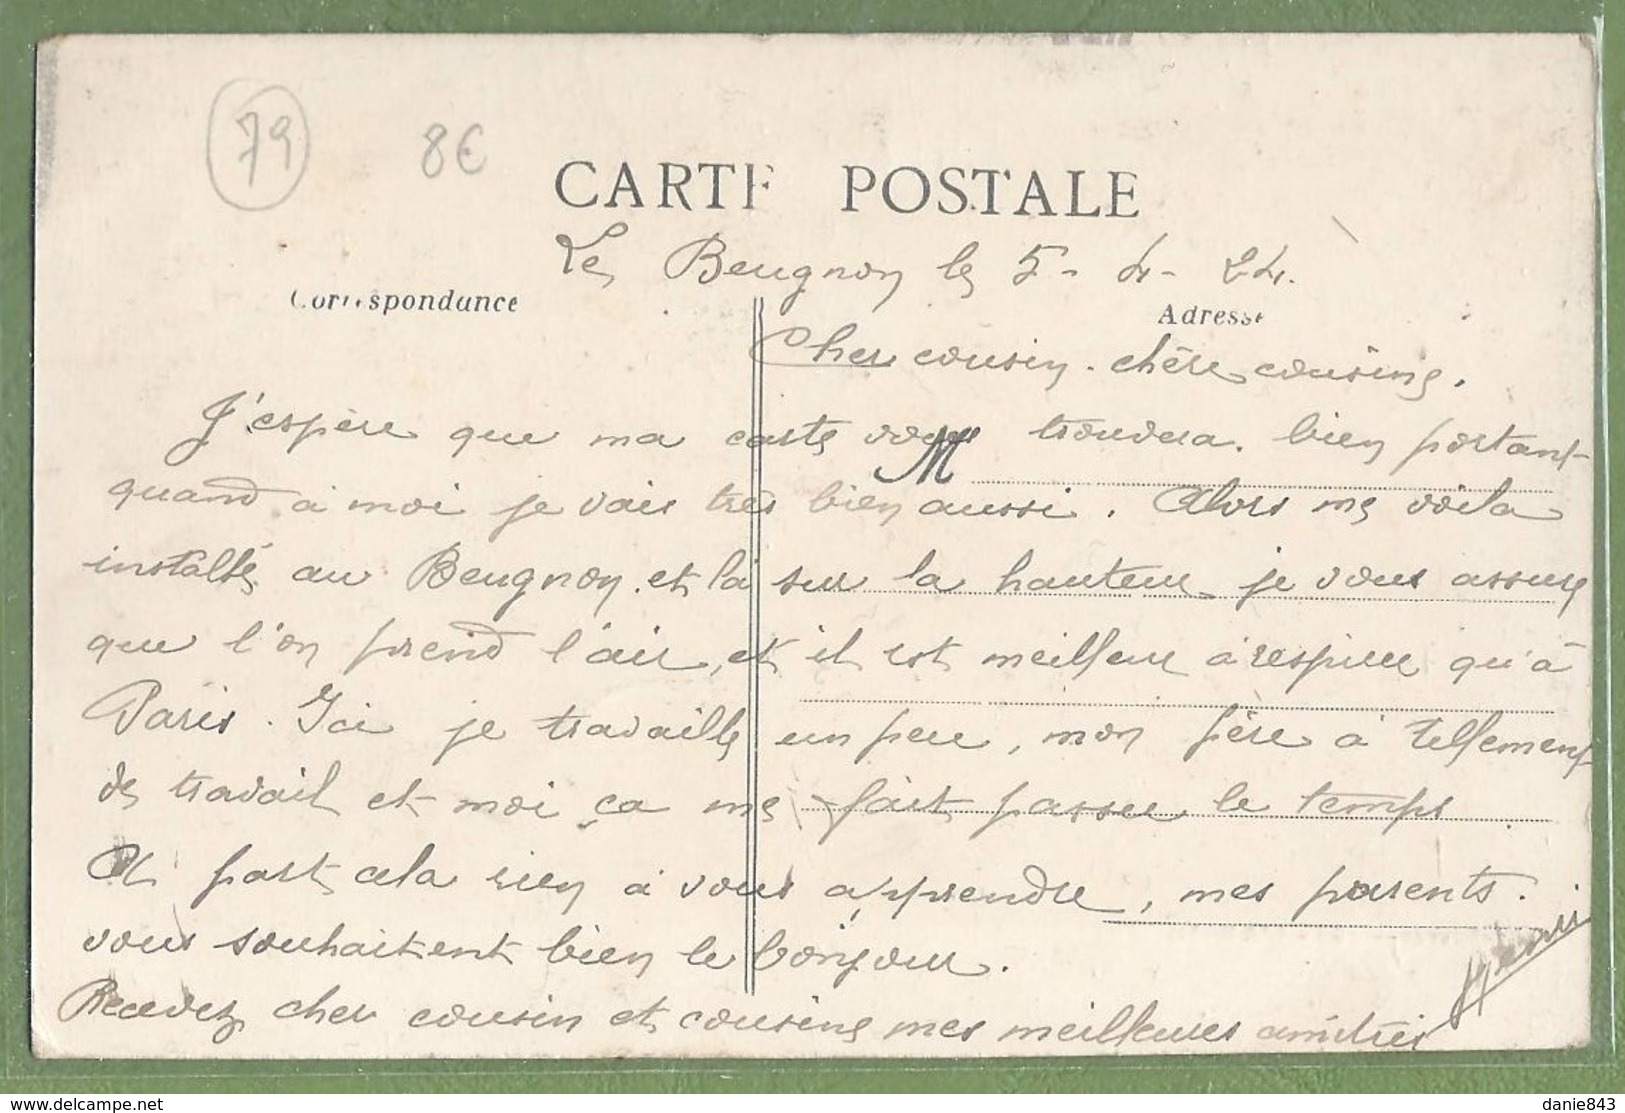 79 8€
CARTE POSTALE
Le Beugnon le 5-4-24.
Correspondance Adresse
Cher cousin. chère cousine.
J'espère que ma carte vous trouvera. bien portant
M
quand à moi je vais très bien aussi. Alors me voila
installé au Beugnon. et là sur la hauteur je vous assure
que l'on prend l'air, et il est meilleur à respirer qu'à
Paris. Ici je travaille un peu, mon père à tellement
de travail et moi ça me fait passer le temps
A part cela rien à vous apprendre, mes parents.
vous souhaitent bien le bonjour.
Recevez cher cousin et cousine mes meilleures amitiés
Henri
https://www.delcampe.net danie843